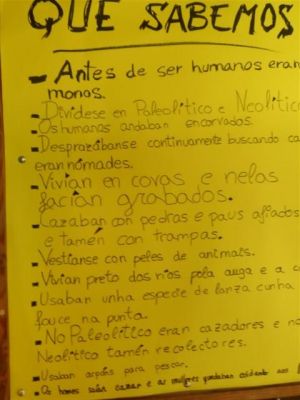 QUE SABEMOS
- Antes de ser humanos eran
monos.
- Divídese en Paleolítico e Neolític
- Os humanos andaban encorvados.
- Desprazábanse continuamente buscando ca
eran nómades.
- Vivían en covas e nelas
facían grabados.
- Cazaban con pedras e paus afiados
e tamén con trampas.
- Vestíanse con peles de animais.
- Vivían preto dos ríos pola auga e a c
- Usaban unha especie de lanza cunha
fouce na punta.
- No Paleolítico eran cazadores e no
Neolítico tamén recolectores.
- Usaban arpóns para pescar.
- Os homes saían cazar e as mulleres quedaban coidando aos f